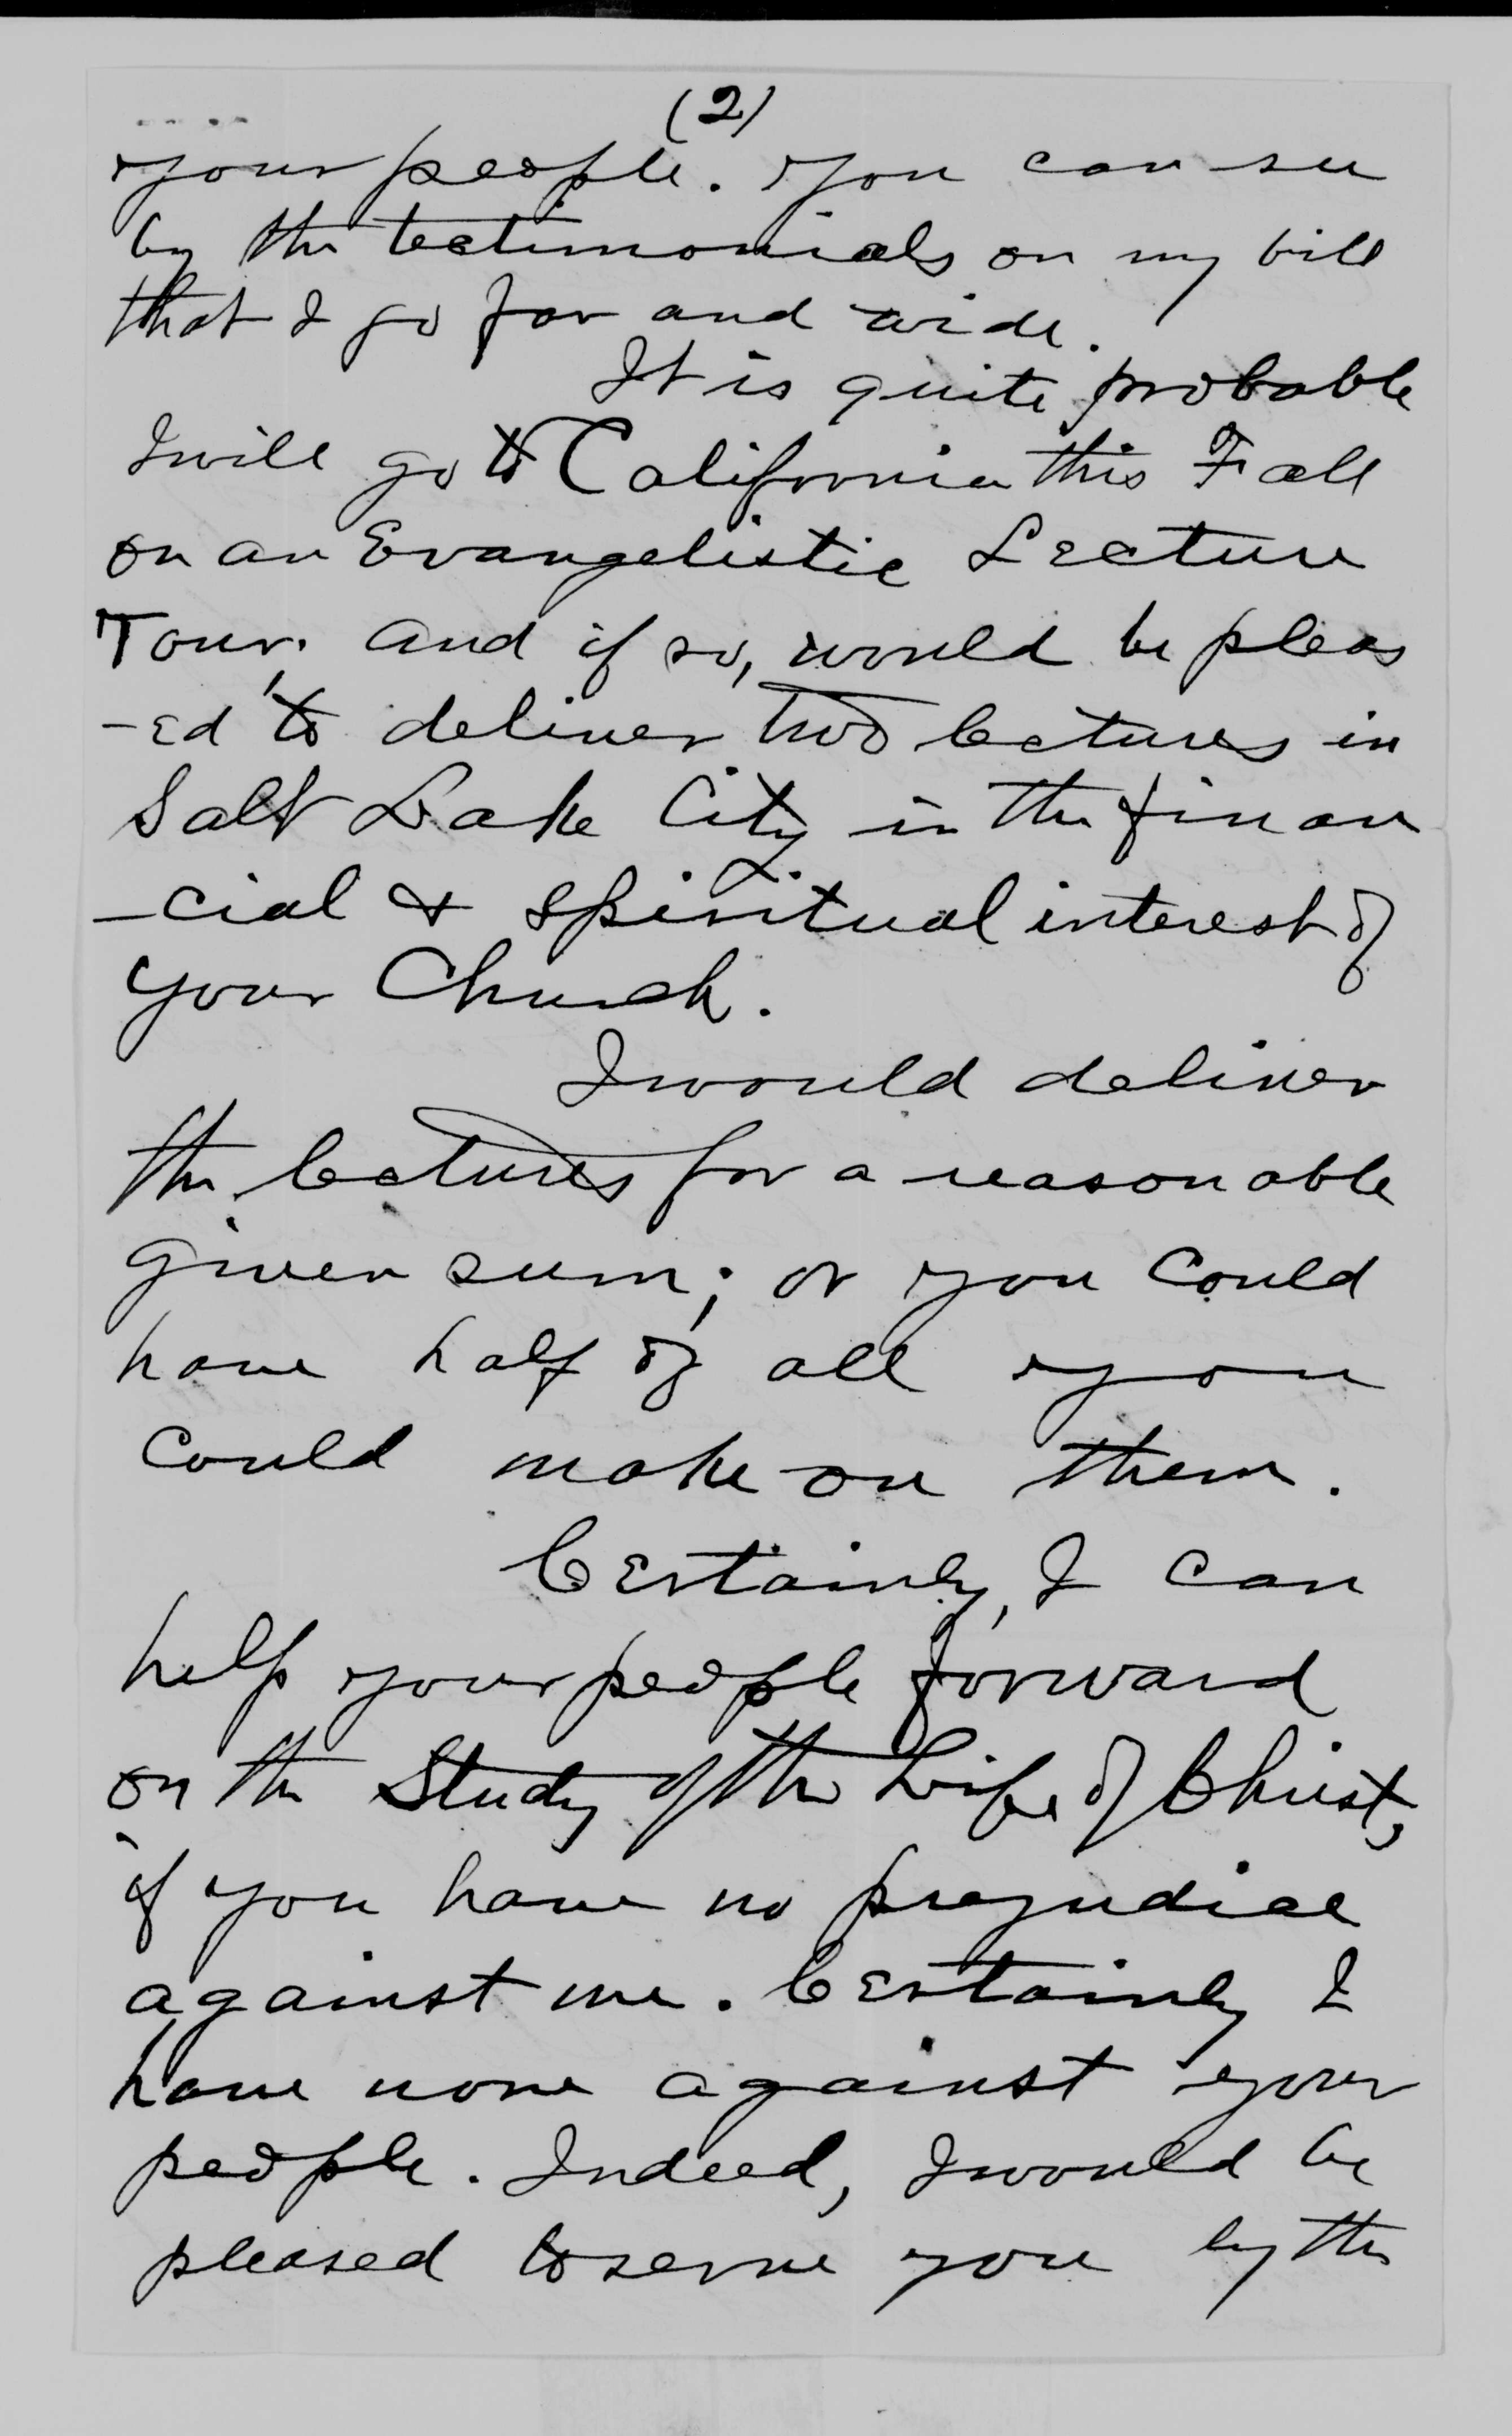 (2)
your people. You can see
by the testimonials on my bill
that I go far and wide.
It is quite probable
I will go to California this Fall
on an Evangelistic Lecture
Tour, and if so, would be pleas
-ed to deliver two lectures in
Salt Lake City in the finan
-cial & spiritual interest of
your Church.
I would deliver
the lectures for a reasonable
given sum; or you could
have half of all you
could make on them.
Certainly, I can
help your people forward
on the Study of the Life of Christ,
if you have no prejudice
against me. Certainly I
have none against your
people. Indeed, I would be
pleased to serve you by the